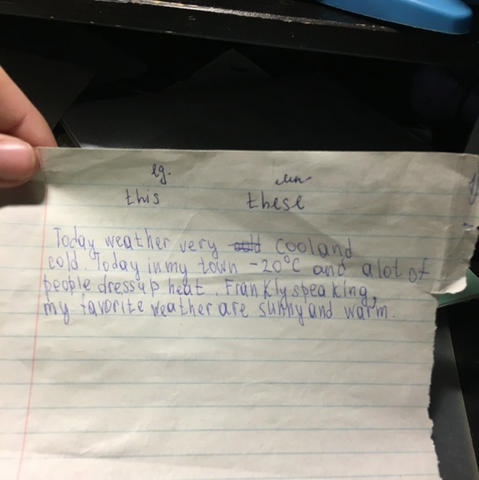 eg.
this these
Today weather very cold cool and
cold. Today in my town -20°C and a lot of
people dress up heat. Frankly speaking,
my favorite weather are sunny and warm.